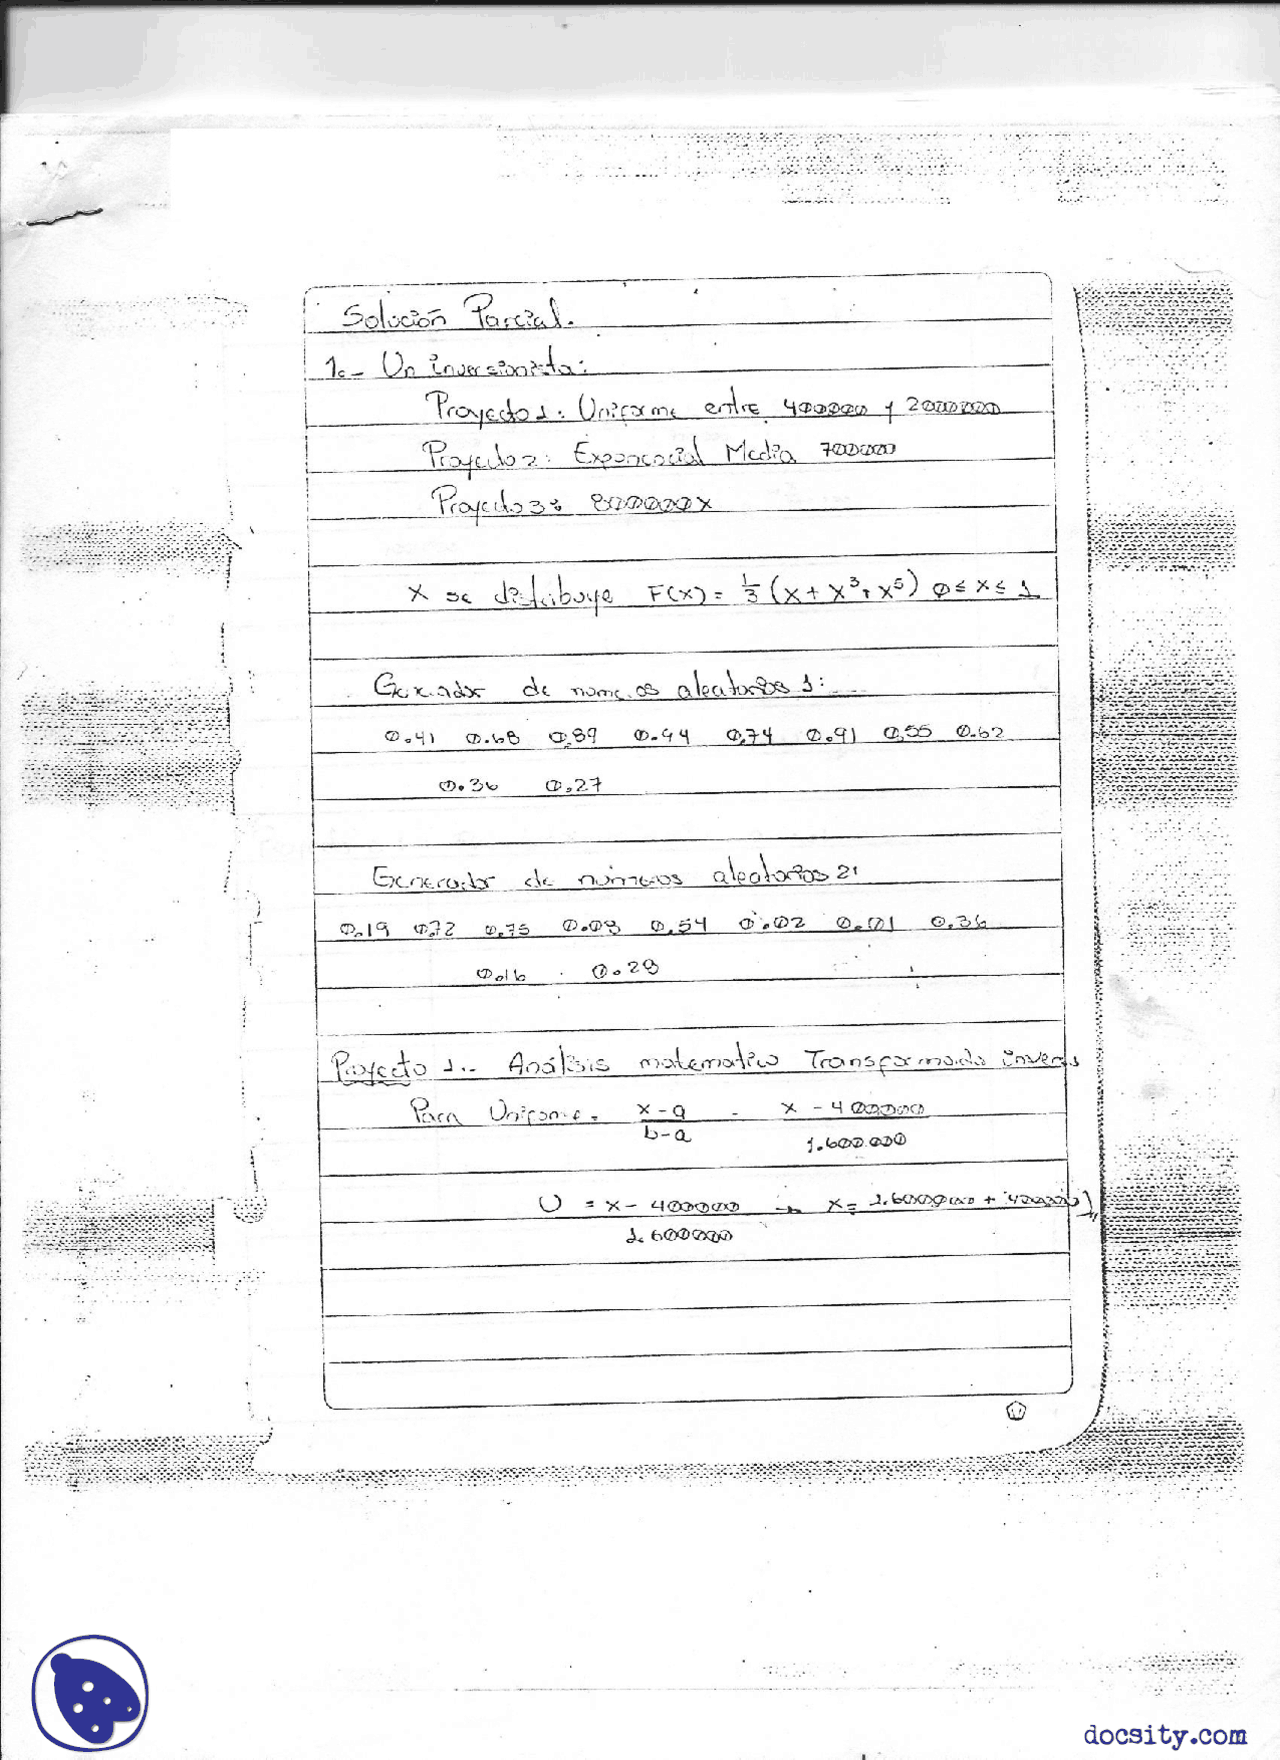 Solución Parcial.
1.- Un inversionista:
Proyecto 1: Uniforme entre 400000 y 2000000
Proyecto 2: Exponencial Media 700000
Proyecto 3: 800000x
X se distribuye F(x) = 1/3 (x + x³ + x⁵) 0 ≤ x ≤ 1
Generador de numeros aleatorios 1:
0.41 0.68 0.89 0.94 0.74 0.91 0.55 0.62
0.36 0.27
Generador de números aleatorios 2:
0.19 0.72 0.75 0.08 0.54 0.02 0.01 0.36
0.16 0.28
Proyecto 1.- Análisis matematico Transformada inversa
Para Uniforme. x-a / b-a = x - 400000 / 1.600.000
U = x - 400000 / 1.600000 → x = 1.600000 + 400000
docsity.com